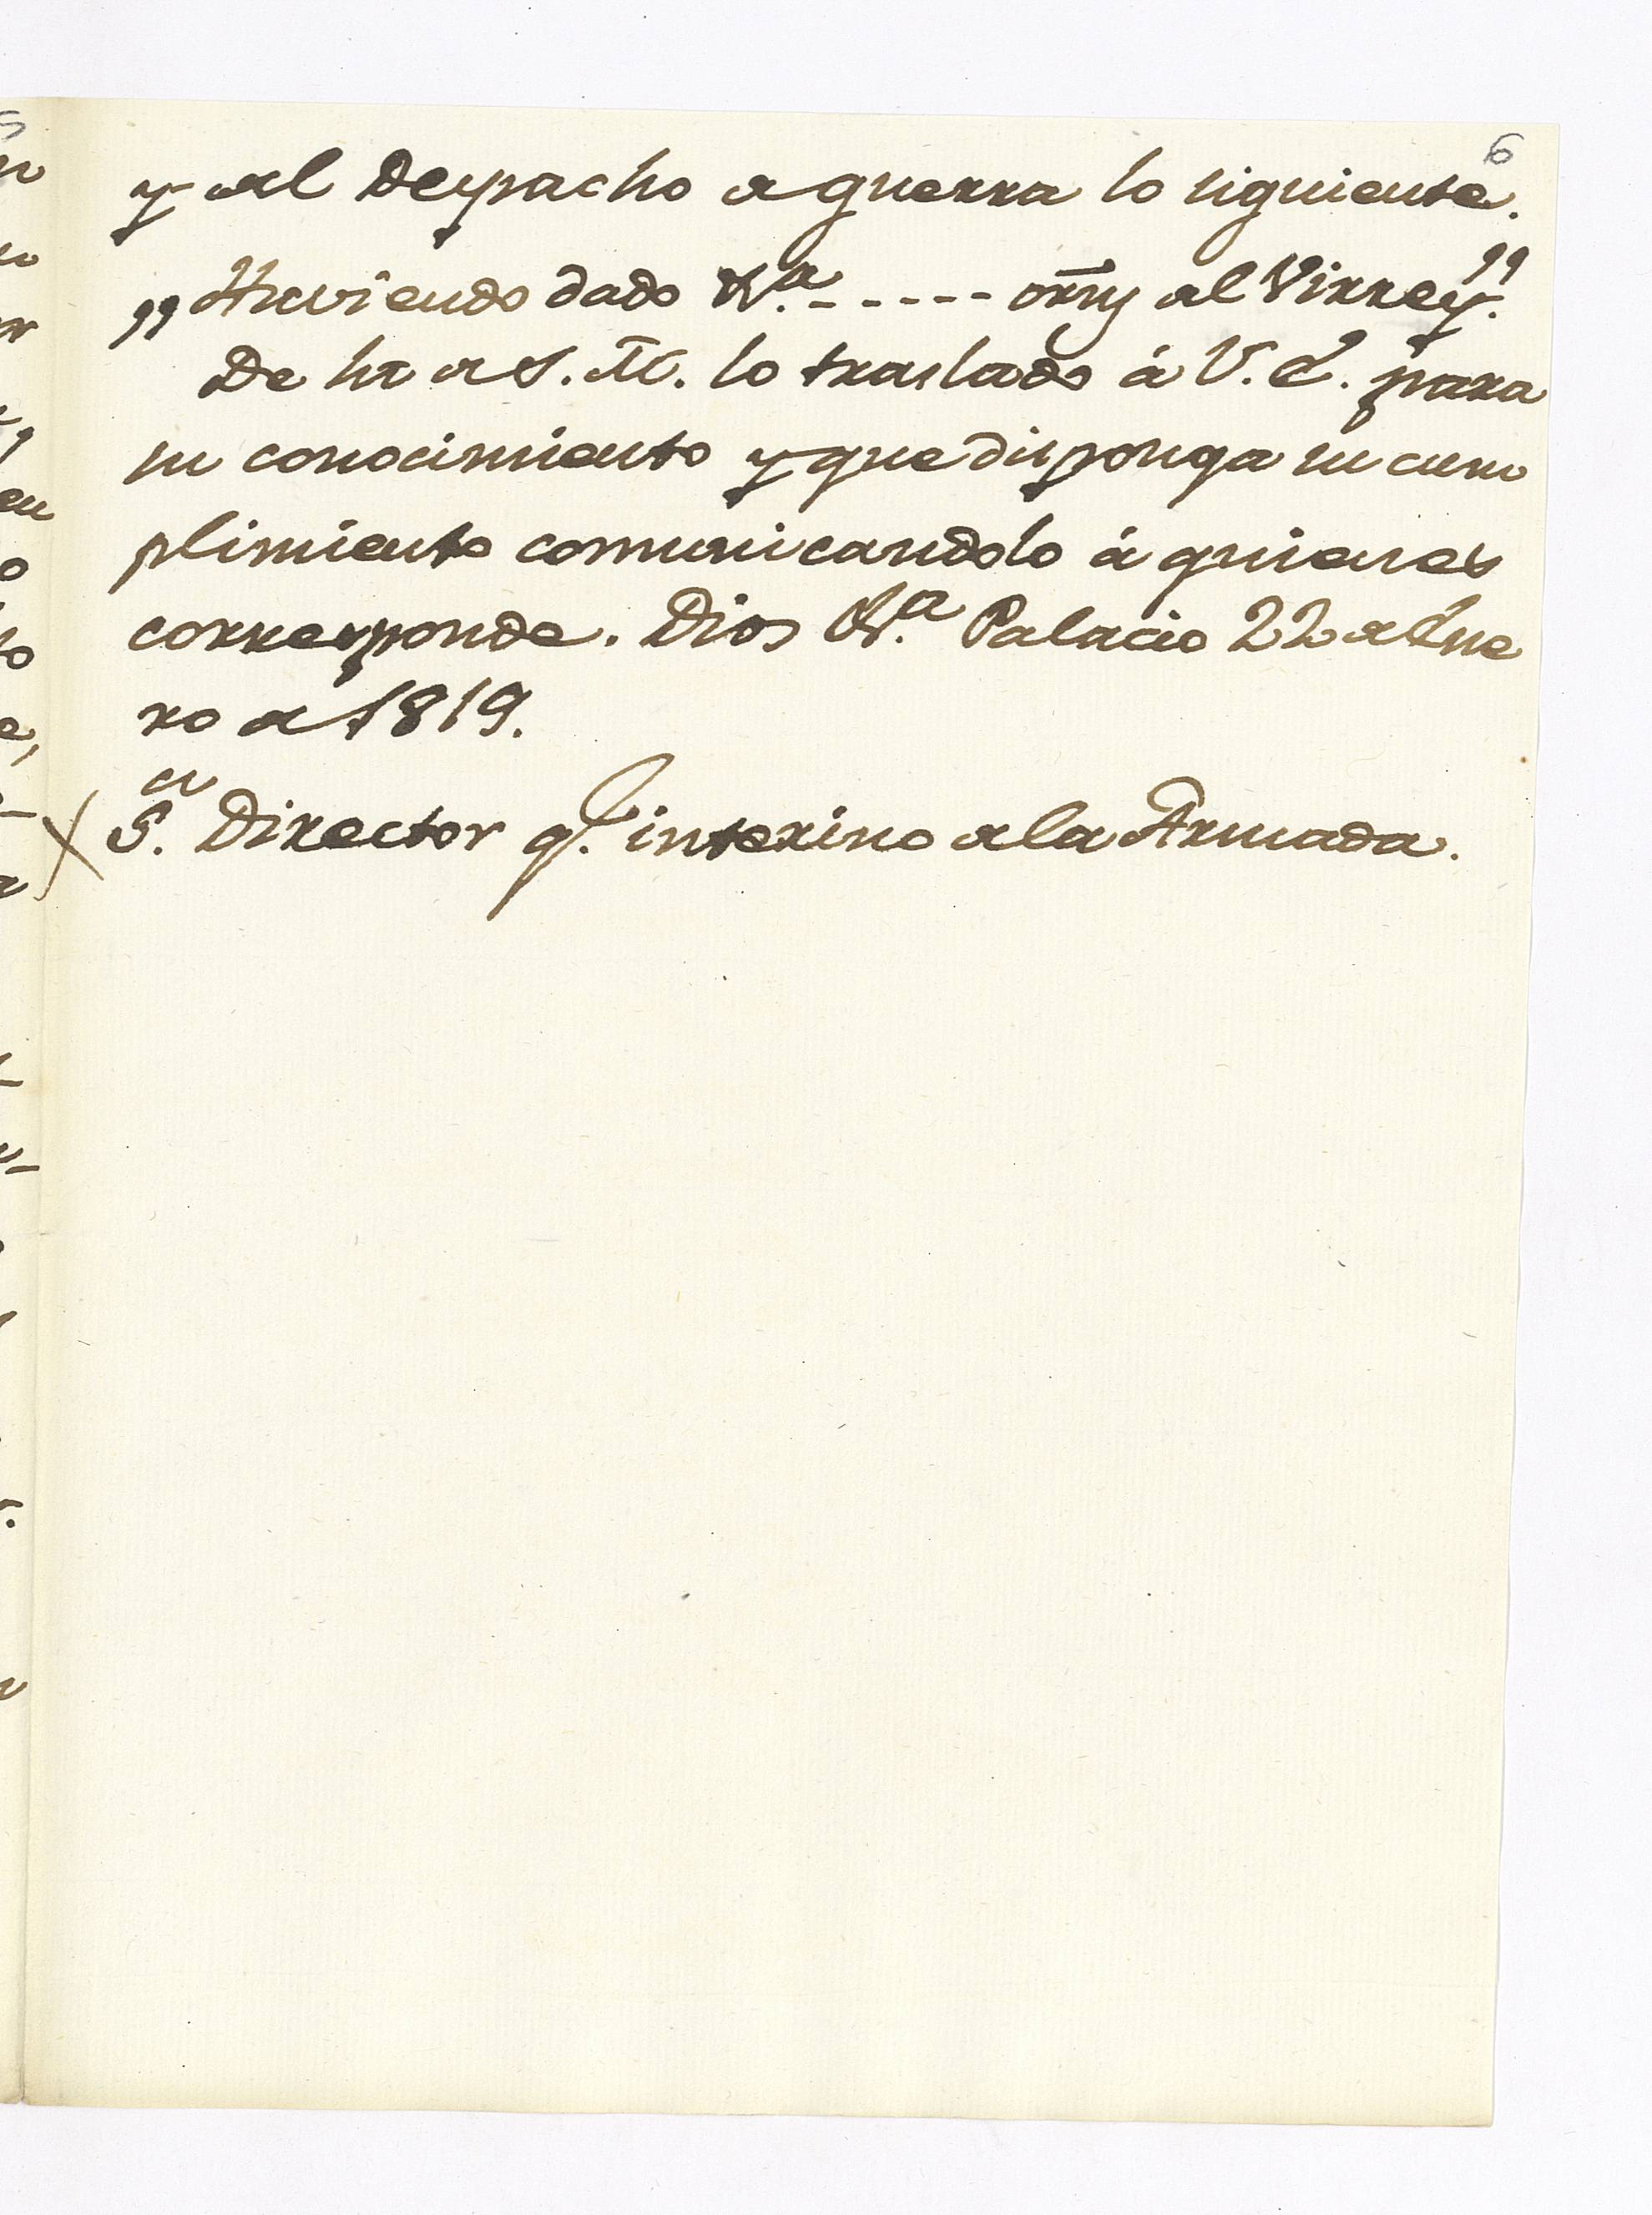 6
y al Despacho de guerra lo siguiente.
"Haviendo dado &.ª ------ orñs al Virrey."
De Rl or S. M. lo traslado á V. E. para
su conocimiento y que disponga su cum
plimiento comunicandolo á quienes
corresponde. Dios &.ª Palacio 22 de Ene
ro de 1819.
S.or Director gl. interino de la Armada.